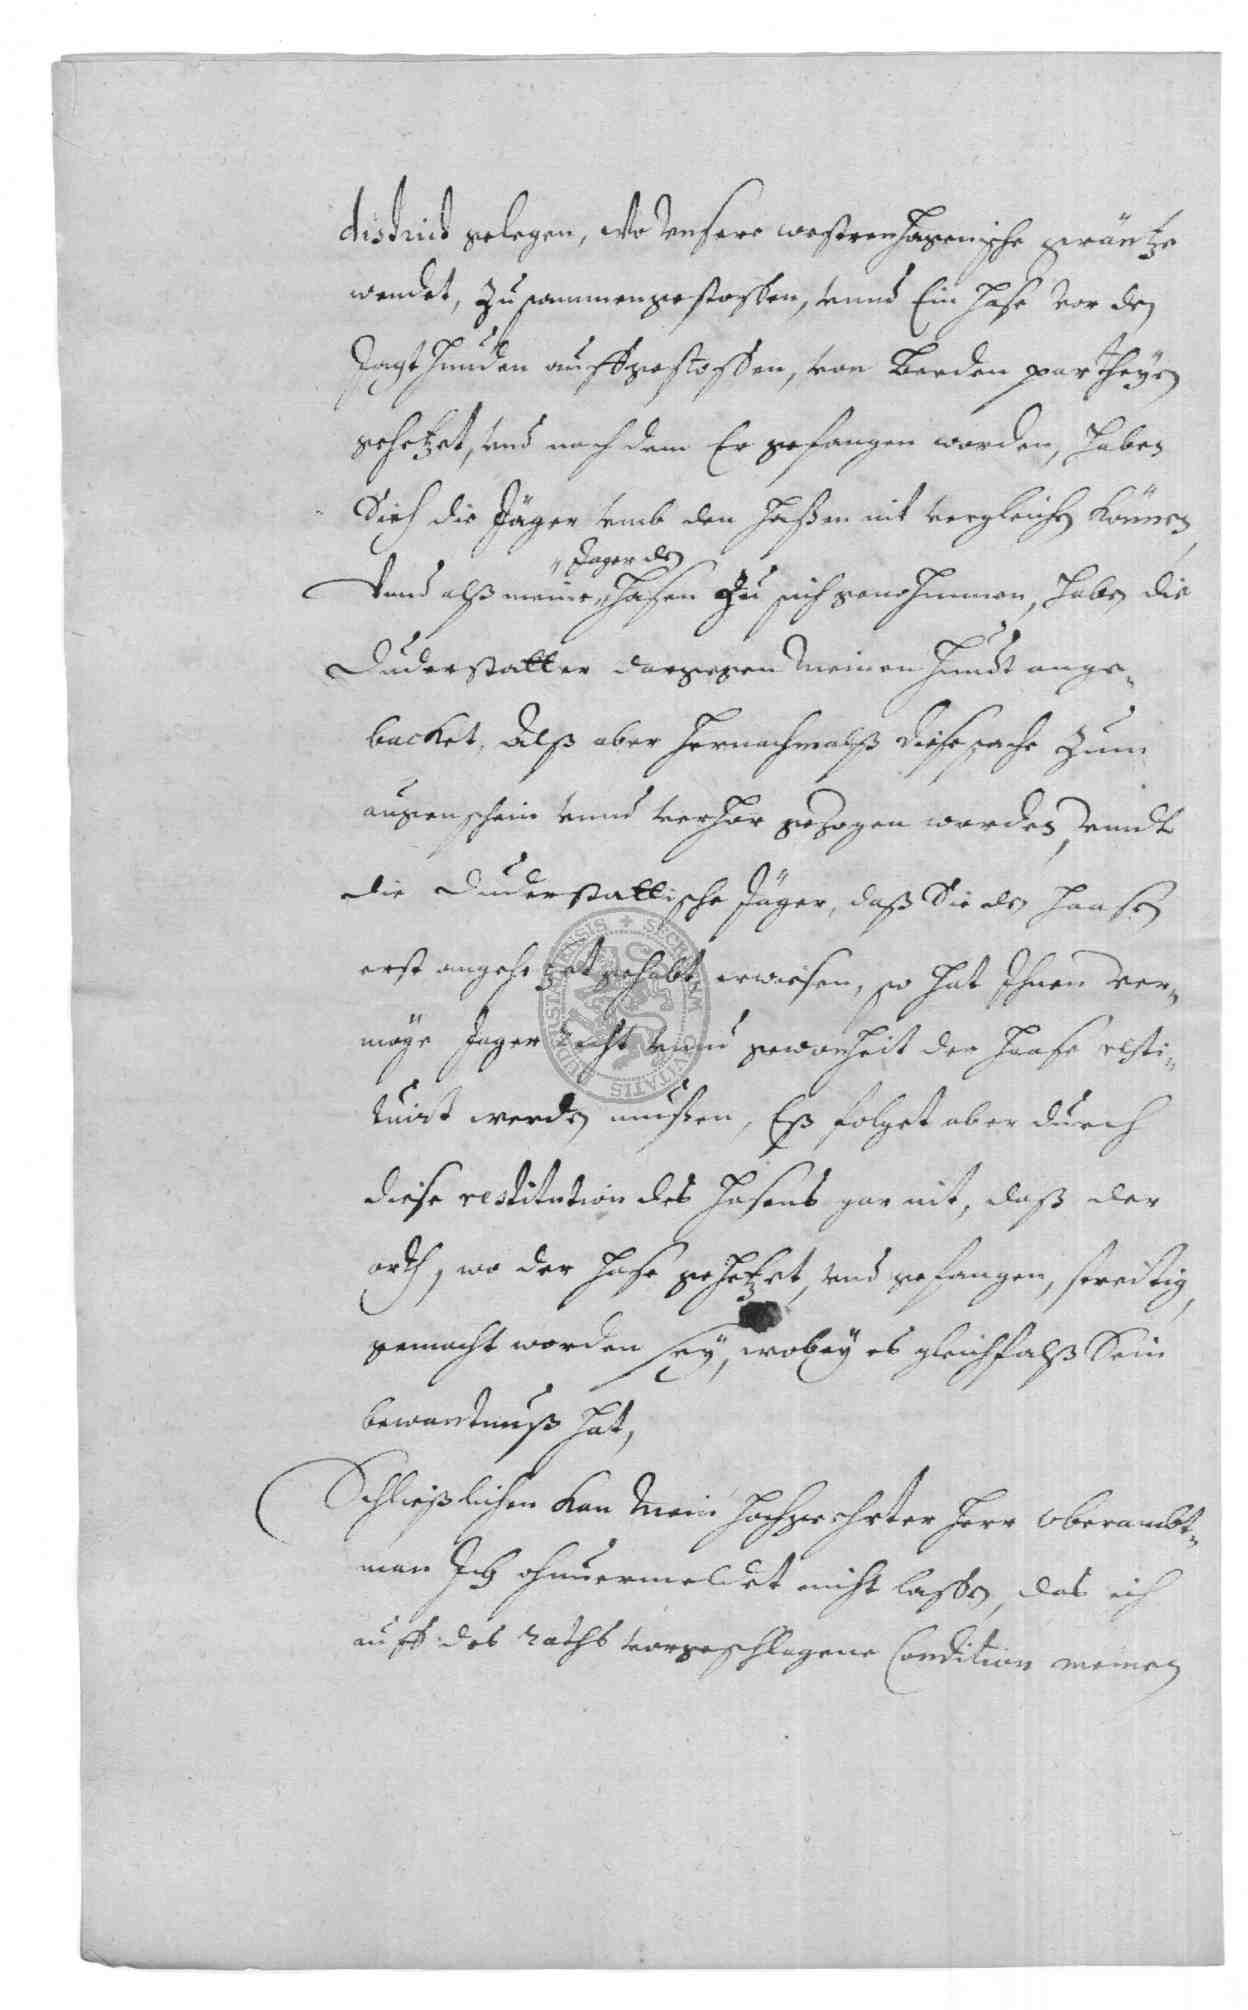 district gelegen, wo Unsere westernhagenische gräntze
wendet, zusammengestossen, unnd Ein Hase vor den
Jagthunden auffgestossen, von Beeden partheyen
gehetzet, und nach dem Er gefangen worden, haben
Sich die Jäger umb den Haßen nit vergleichen können,
Jager den
Unnd alß meine Hasen zu sich genohmmen, haben die
Duderstatter dargegen meinen Hundt ange-
backet, Alß aber hernachmalß diese sache zum
augenschein unnd verhör gezogen worden, unndt
die Duderstattische Jäger, daß Sie den Haasen
erst angehetzet gehabt erwiesen, so hat Ihnen ver-
möge Jager recht unnd gewonheit der Haase resti-
tuirt werden mußen, Eß folget aber durch
diese restitution des Hasens gar nit, daß der
orth, wo der Hase gehetzet, und gefangen, streitig
gemacht worden sey, wobey es gleichfalß Sein
bewantnuß hat,
Schließlichen kan Mein hochgeehrter Herr Oberambt-
man Ich ohnvermeldet nicht lassen, das ich
auff des raths vorgeschlagene Condition meinen
SECRETVM CIVITATIS DUDERSTADENSIS